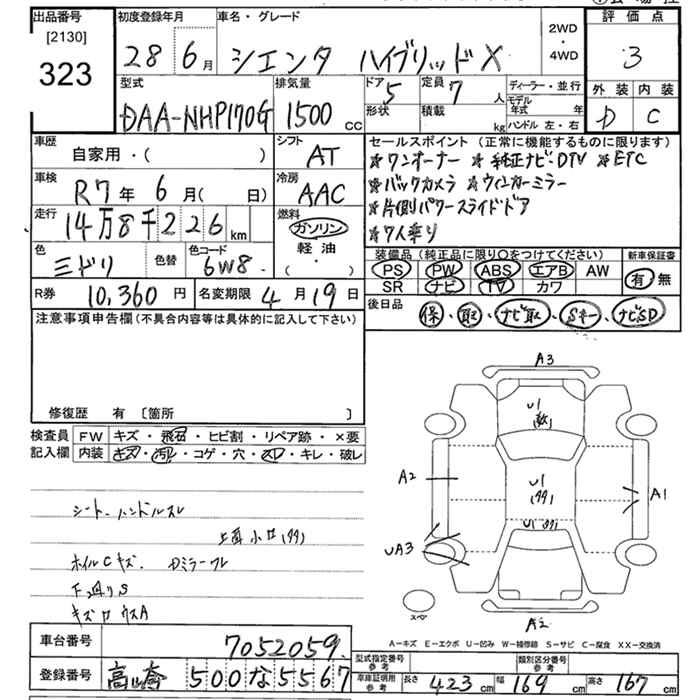 出品番号
[2130]
323
初度登録年月
28年 6月
車名・グレード
シエンタ ハイブリッドX
2WD
・
4WD
評価点
3
外装 内装
D C
型式
DAA-NHP170G
排気量
1500 cc
ドア 5
形状
定員 7 人
積載 kg
ディーラー・並行
モデル年式 年
ハンドル 左・右
車歴
自家用・( )
シフト
AT
車検
R7年 6月( 日)
冷房
AAC
走行
14万8千226km
燃料
ガソリン
軽油
・
( )
色
ミドリ
色替
色コード
6W8
R券 10,360円
名変期限 4月19日
セールスポイント (正常に機能するものに限ります)
★ワンオーナー ★純正ナビDTV ★ETC
★バックカメラ ★ウィンカーミラー
★片側パワースライドドア
★7人乗り
装備品 (純正品に限り○をつけてください)
PS PW ABS エアB AW
SR ナビ TV カワ
新車保証書
有・無
後日品
保、取、ナビ取、Sキー、ナビSD
注意事項申告欄(不具合内容等は具体的に記入して下さい)
修復歴 有 [箇所 ]
検査員記入欄
FW キズ・飛石・ヒビ割・リペア跡・×要
内装 キズ・汚レ・コゲ・穴・スレ・キレ・破レ
シート、ハンドルスレ
ホイルCキズ、Dミラーワレ
A3
U1
U1
U1
A2
A1
UA3
スペア
A2
A=キズ E=エクボ U=凹み W=補修跡 S=サビ C=腐食 XX=交換済
車台番号 7052059
登録番号 高崎 500 な 5567
型式指定番号 参考
類別区分番号 参考
車庫証明用 参考 長さ 423cm 幅 169cm 高さ 167cm